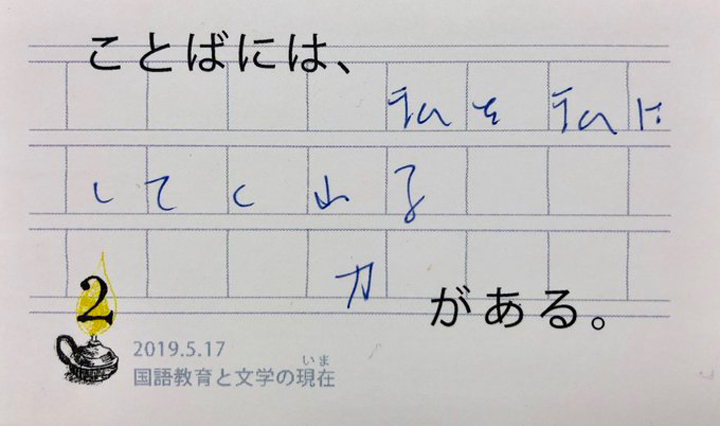 ことばには、
私を私に
してくれる
力
がある。
2
2019.5.17
いま
国語教育と文学の現在